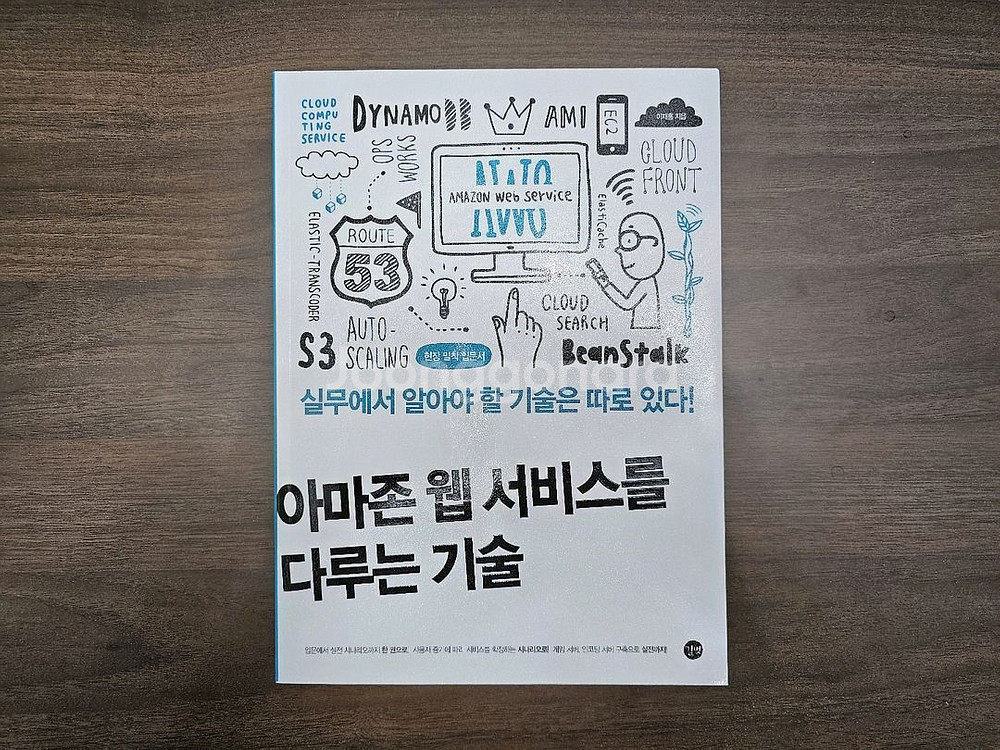 CLOUD
COMPU
TING
SERVICE
DYNAMO
AMI
EC2
이재홍 지음
OPS
WORKS
CLOUD
FRONT
AMAZON Web Service
ElastiCache
ELASTIC-TRANSCODER
ROUTE
53
CLOUD
SEARCH
S3
AUTO-
SCALING
현장 밀착 입문서
BeanStalk
실무에서 알아야 할 기술은 따로 있다!
아마존 웹 서비스를
다루는 기술
입문에서 실전 시나리오까지 한 권으로! 사용자 증가에 따라 서비스를 확장하는 시나리오로! 게임 서버, 인코딩 서버 구축으로 실전까지!
길벗